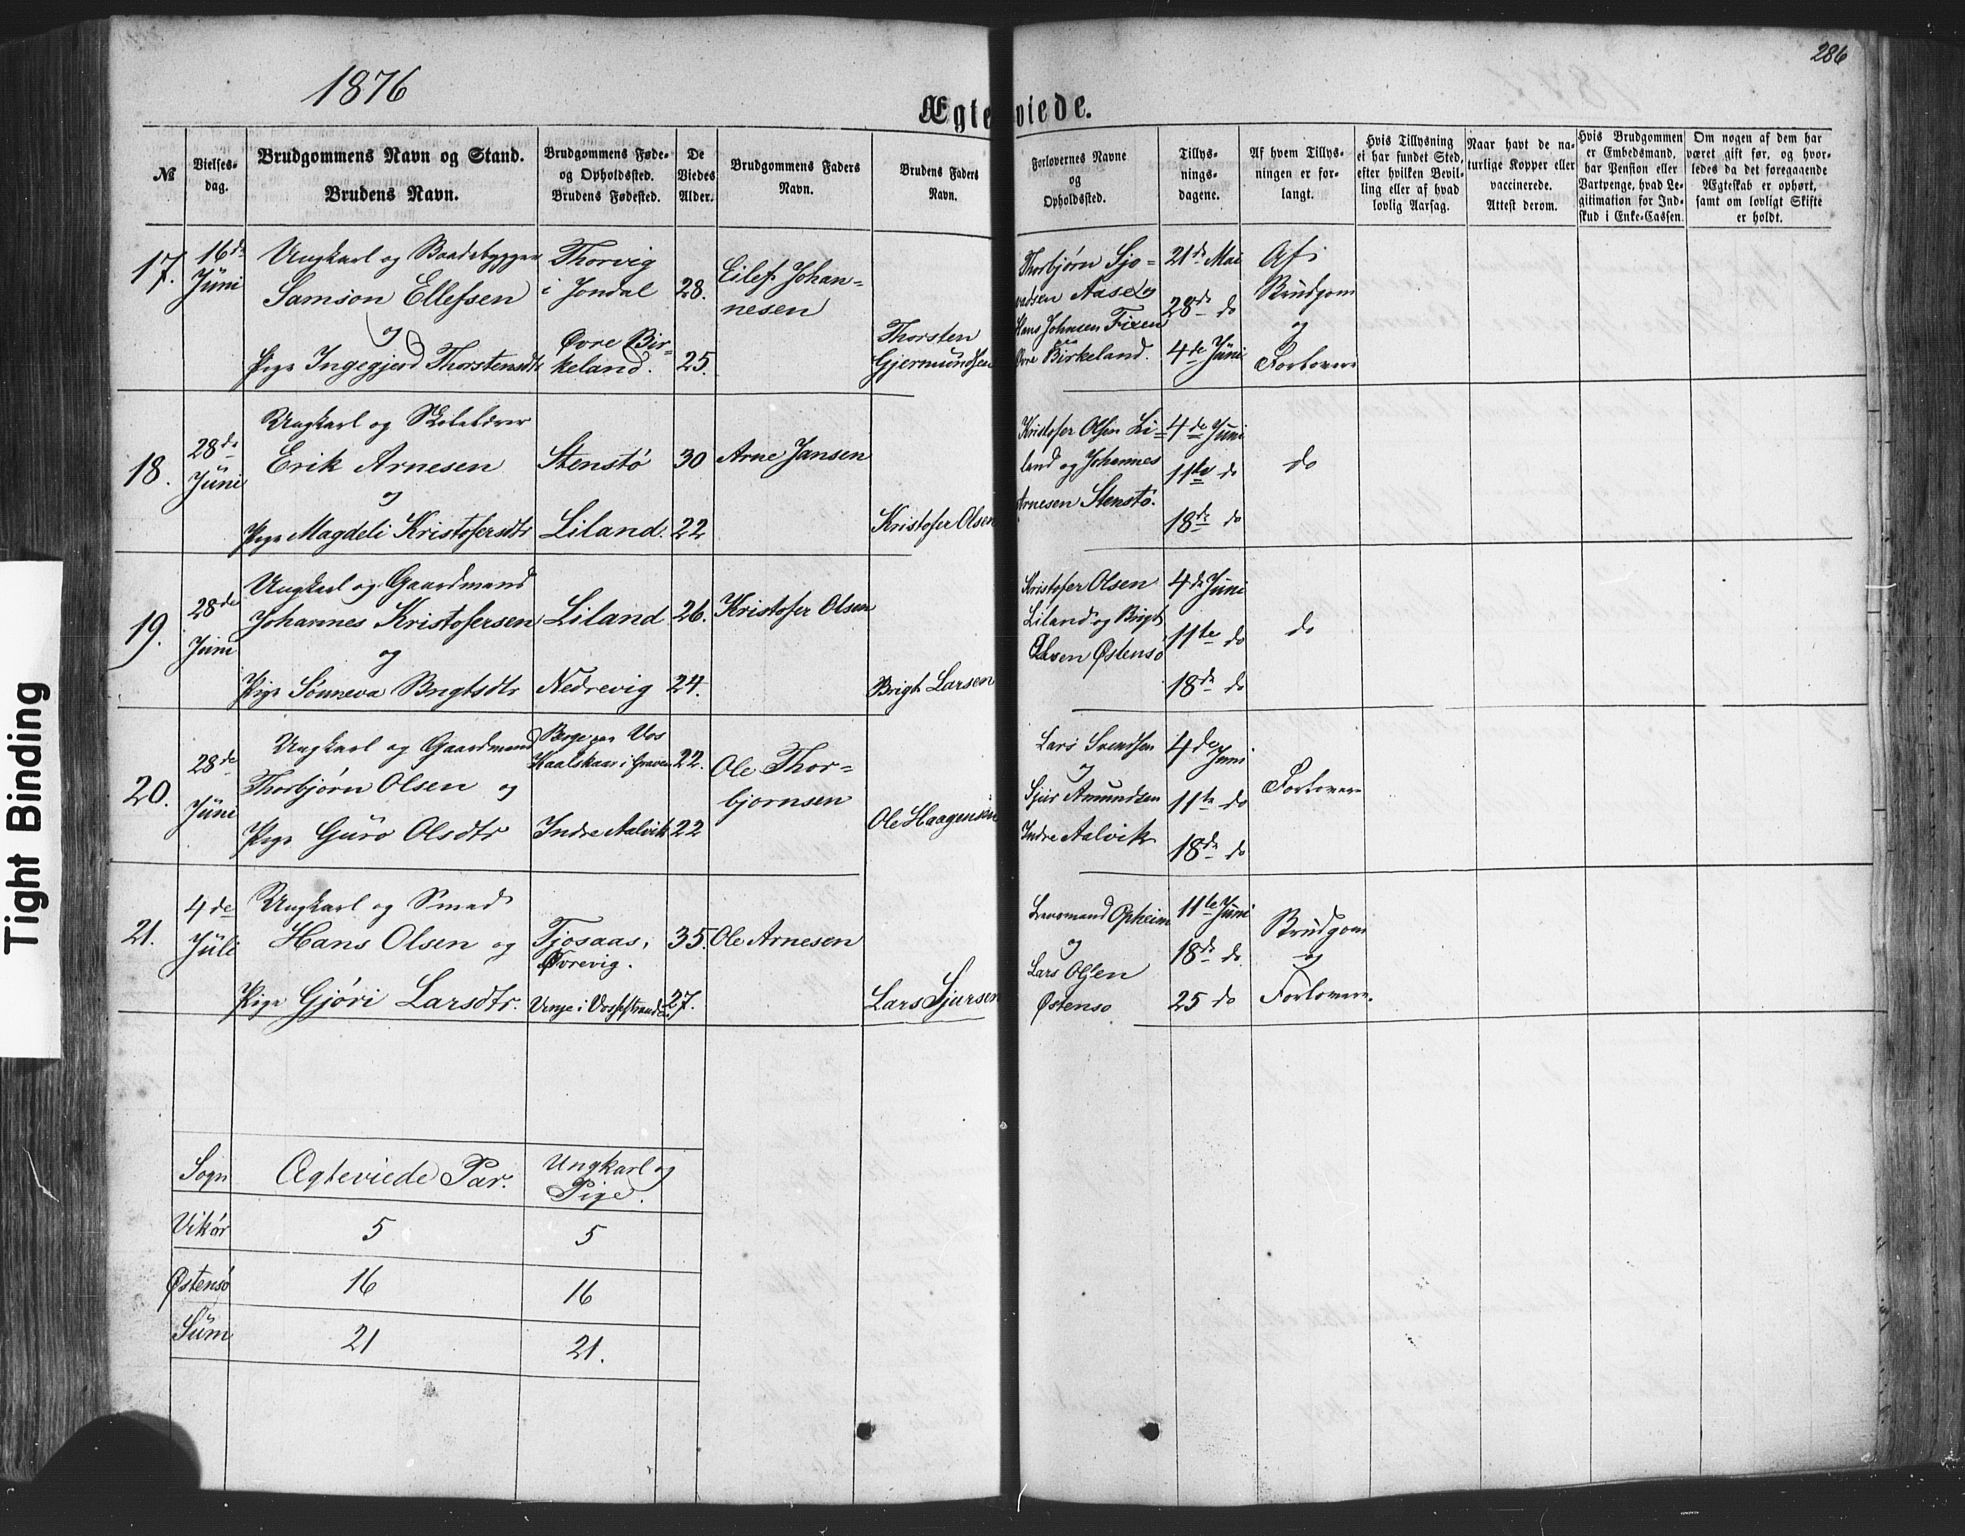 286
1876
Ægteviede.
№
Vielses-
dag.
Brudgommens Navn og Stand.
Brudens Navn.
Brudgommens Føde-
og Opholdsted.
Brudens Fødested.
De
Viedes
Alder.
Brudgommens Faders
Navn.
Brudens Faders
Navn.
Forlovernes Navne
og
Opholdssted.
Tillys-
nings-
dagene.
Af hvem Tillys-
ningen er for-
langt.
Hvis Tillysning
ei har fundet Sted,
efter hvilken Bevil-
ling eller af hvad
lovlig Aarsag.
Naar havt de na-
turlige Kopper eller
vaccinerede.
Attest derom.
Hvis Brudgommen
er Embedsmand,
har Pension eller
Vartpenge, hvad Le-
gitimation for Ind-
skud i Enke-Cassen.
Om nogen af dem har
været gift før, og hvor-
ledes da det foregaaende
Ægteskab er ophørt,
samt om lovligt Skifte
er holdt.
17.
16de
Juni
Ungkarl og Baadebygger
Samson Ellefsen
og
Pige Ingegjerd Thorstensdtr
Thorvig
i Jondal
Øvre Bir-
keland.
28.
25.
Eilef Johan-
nesen
Thorsten
Gjermundsen
Thorbjørn Sjo-
Aase og
Hans Johnsen Fixen
Øvre Birkeland.
21de Mai
28de do
4de Juni
Af
Brudgom
og
Forlovere
18.
28de
Juni
Ungkarl og
Erik Arnesen
og
Pige Magdeli Kristofersdtr
Stenstø
Liland.
30
22
Arne Jansen
Kristofer Olsen
Kristofer Olsen Li-
land og Johannes
Arnesen Stenstø.
4de Juni
11te do
18de do
do
19.
28de
Juni
Ungkarl og Gaardmand
Johannes Kristofersen
og
Pige Sønneva Brigtsdtr
Liland
Nedrevig
26.
24.
Kristofer Olsen
Brigt Larsen
Kristofer Olsen
Liland og Brigt
Olsen Østensø
4de Juni
11te do
18de do
do
20.
28de
Juni
Ungkarl og Gaardmand
Thorbjørn Olsen og
Pige Guro Olsdtr
Vos
Kaalskaar i Graven
Indre Aalvik
22.
22
Ole Thor-
bjornsen
Ole Haagensen
Lars Svendsen
og
Sjur Amundsen
Indre Aalvik
4de Juni
11te do
18de do
Forlovere
21.
4de
Juli
Ungkarl og Smed
Hans Olsen og
Pige Gjøri Larsdtr.
Tjosaas,
Øvrevig.
Vinje i Vossestranden
35.
27.
Ole Arnesen
Lars Sjursen
Opheim
og
Lars Olsen
Østenso
11te Juni
18de do
25 do
Brudgom
og
Forlovere.
Sogn
Ægteviede Par.
Ungkarl og
Pige.
Vikør
5
5
Østensø
16
16
Sum
21
21.
Tight Binding